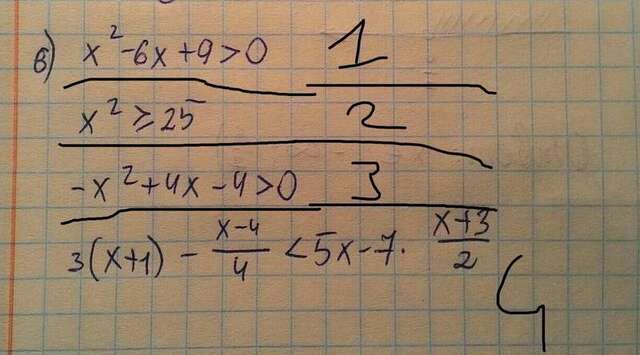 в) x²-6x+9>0 1
x²≥25 2
-x²+4x-4>0 3
3(x+1) - (x-4)/4 <5x-7· (x+3)/2 4